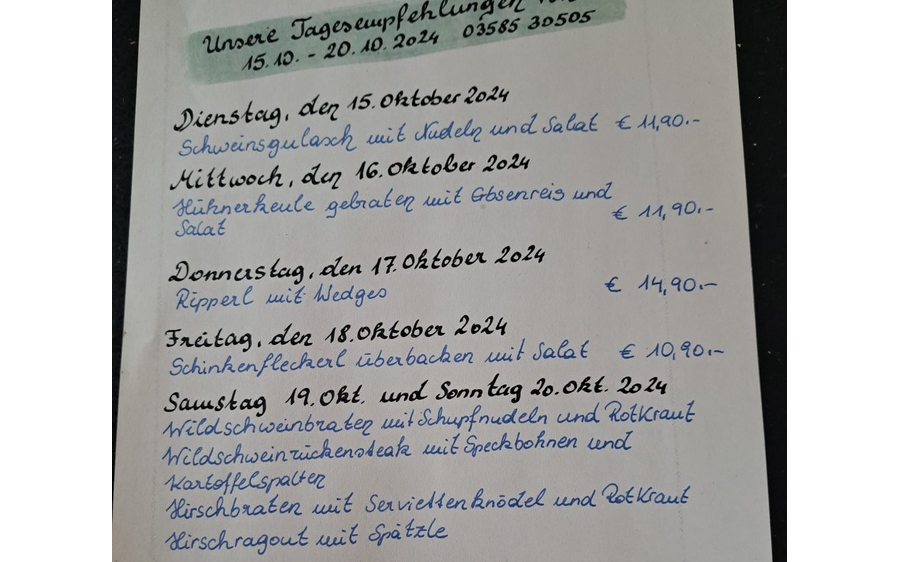 Unsere Tagesempfehlungen
15.10. - 20.10.2024 03585 30505
Dienstag, den 15. Oktober 2024
Schweinsgulasch mit Nudeln und Salat € 11,90.-
Mittwoch, den 16. Oktober 2024
Hühnerkeule gebraten mit Ebsenreis und
Salat € 11,90.-
Donnerstag, den 17. Oktober 2024
Ripperl mit Wedges € 14,90.-
Freitag, den 18. Oktober 2024
Schinkenfleckerl überbacken mit Salat € 10,90.-
Samstag 19. Okt. und Sonntag 20. Okt. 2024
Wildschweinbraten mit Schupfnudeln und Rotkraut
Wildschweinrückensteak mit Speckbohnen und
Kartoffelspalten
Hirschbraten mit Serviettenknödel und Rotkraut
Hirschragout mit Spätzle